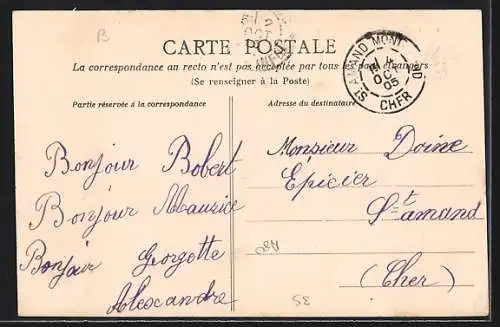 B
CARTE POSTALE
La correspondance au recto n'est pas acceptée par tous les pays étrangers
(Se renseigner à la Poste)
Partie réservée à la correspondance
Adresse du destinataire
ST AMAND MONT
OCT
05
CHER
Bonjour Robert
Bonjour Maurice
Bonjour Georgette
Alexandre
Monsieur Doine
Epicier
St amand
(Cher)
35